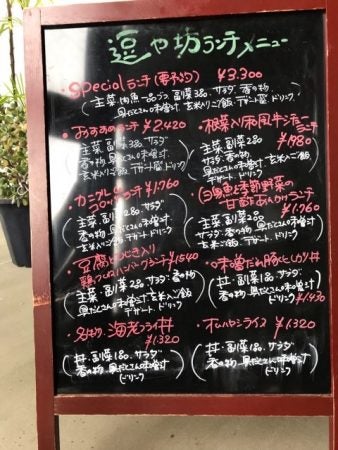 逗や坊ランチメニュー
・specialランチ(要予約) ¥3.300
(主菜 肉魚一品づつ 副菜3品 サラダ 香の物
具だくさん味噌汁 玄米入りご飯 デザート 食後ドリンク)
・おすすめランチ ¥2.420
(主菜 副菜3品 サラダ
香の物
具だくさん味噌汁
玄米入りご飯
デザート ドリンク)
・カニクリーム
コロッケランチ ¥1.760
(主菜 副菜2品 サラダ
香の物 具だくさん味噌汁
玄米入りご飯 デザート ドリンク)
・豆腐ひじき入り
鶏つくねハンバーグランチ ¥1540
(主菜・副菜2品・サラダ 香の物
具だくさん味噌汁 玄米入りご飯
デザート・ドリンク)
・名物 海老フライ丼
¥1.320
(丼・副菜1品・サラダ
香の物 具だくさん味噌汁
ドリンク)
・根菜入り和風牛シチュー
ランチ
¥1980
(主菜 副菜2品
サラダ・香の物
具だくさん味噌汁
玄米入りご飯
デザート・ドリンク)
・白身魚と季節野菜の
甘酢あんかけランチ
¥1.760
(主菜 副菜2品
サラダ・香の物 具だくさん味噌汁
玄米ご飯 デザート ドリンク)
・味噌だれ豚ヒレカツ丼
(丼・副菜1品・サラダ
香の物 具だくさん味噌汁
ドリンク)
¥1.430
・オムハヤシライス ¥1.320
(丼・副菜1品 サラダ
香の物・具だくさん味噌汁
ドリンク)